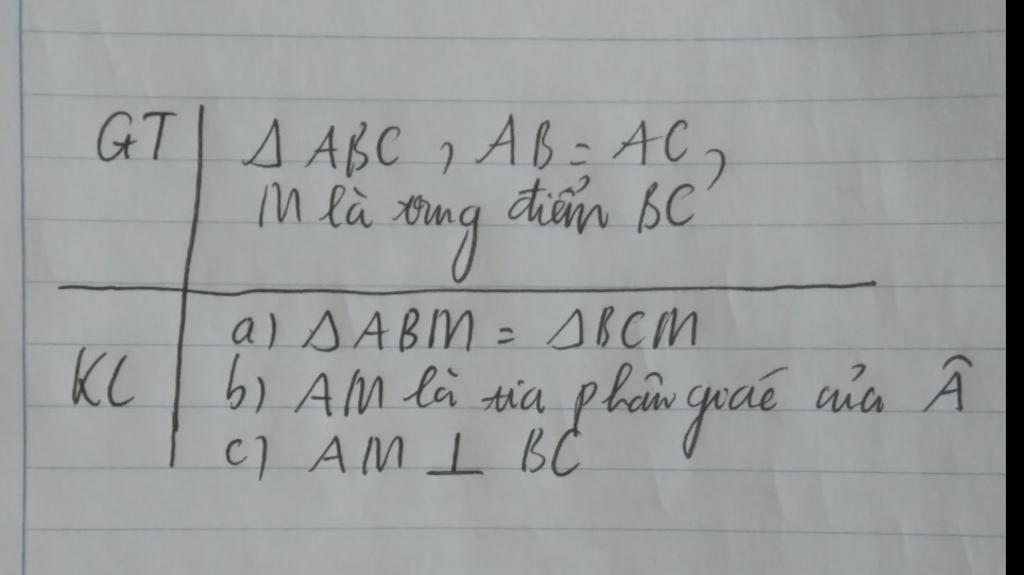 GT
Δ ABC , AB = AC,
M là trung điểm BC
KL
a) Δ ABM = Δ BCM
b) AM là tia phân giác của Â
c) AM ⊥ BC